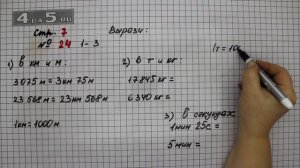 4АВ5.RU
Стр. 7
№ 24 1-3
Вырази:
1) В км и м:
3 075 м = 3 км 75 м
23 568 м = 23 км 568 м
1 км = 1000 м
2) В т и кг:
17 845 кг =
6 340 кг =
1 т = 10
3) В секундах
1 мин 25 с =
5 мин =